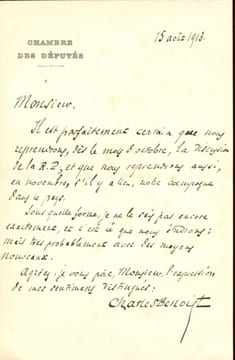 CHAMBRE
DES DÉPUTÉS
15 août 1913.
Monsieur,
Il est parfaitement certain que nous
reprendrons, dès le mois d'octobre, la discussion
de la R. P., et que nous reprendrons aussi,
en novembre, s'il y a lieu, notre campagne
dans le pays.
Sous quelle forme, je ne le sais pas encore
exactement, et c'est ce que nous étudions;
mais très probablement avec des moyens
nouveaux.
Agréez, je vous prie, Monsieur, l'expression
de mes sentiments distingués:
Charles Benoist